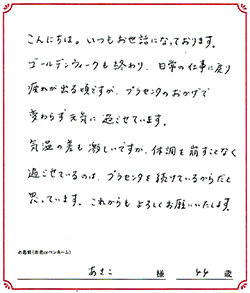 こんにちは。いつもお世話になっております。
ゴールデンウィークも終わり、日常の仕事に戻り
疲れが出る頃ですが、プラセンタのおかげで
変わらず元気に過ごせています。
気温の差も激しいですが、体調を崩すことなく
過ごせているのは、プラセンタを続けているからだと
思っています。これからもよろしくお願いいたします。
お名前(本名orペンネーム)
あきこ 様 44 歳